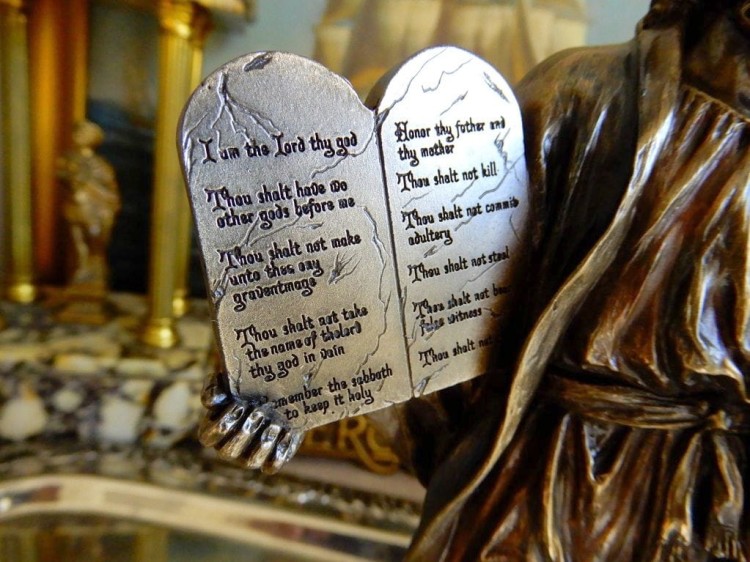 I am the Lord thy god
Thou shalt have no
other gods before me
Thou shalt not make
unto thee any
graventmage
Thou shalt not take
the name of thelord
thy god in vain
member the sabbath
to keep it holy
Honor thy father and
thy mother
Thou shalt not kill
Thou shalt not commit
adultery
Thou shalt not steal
Thou shalt not
false witness
Thou shalt not